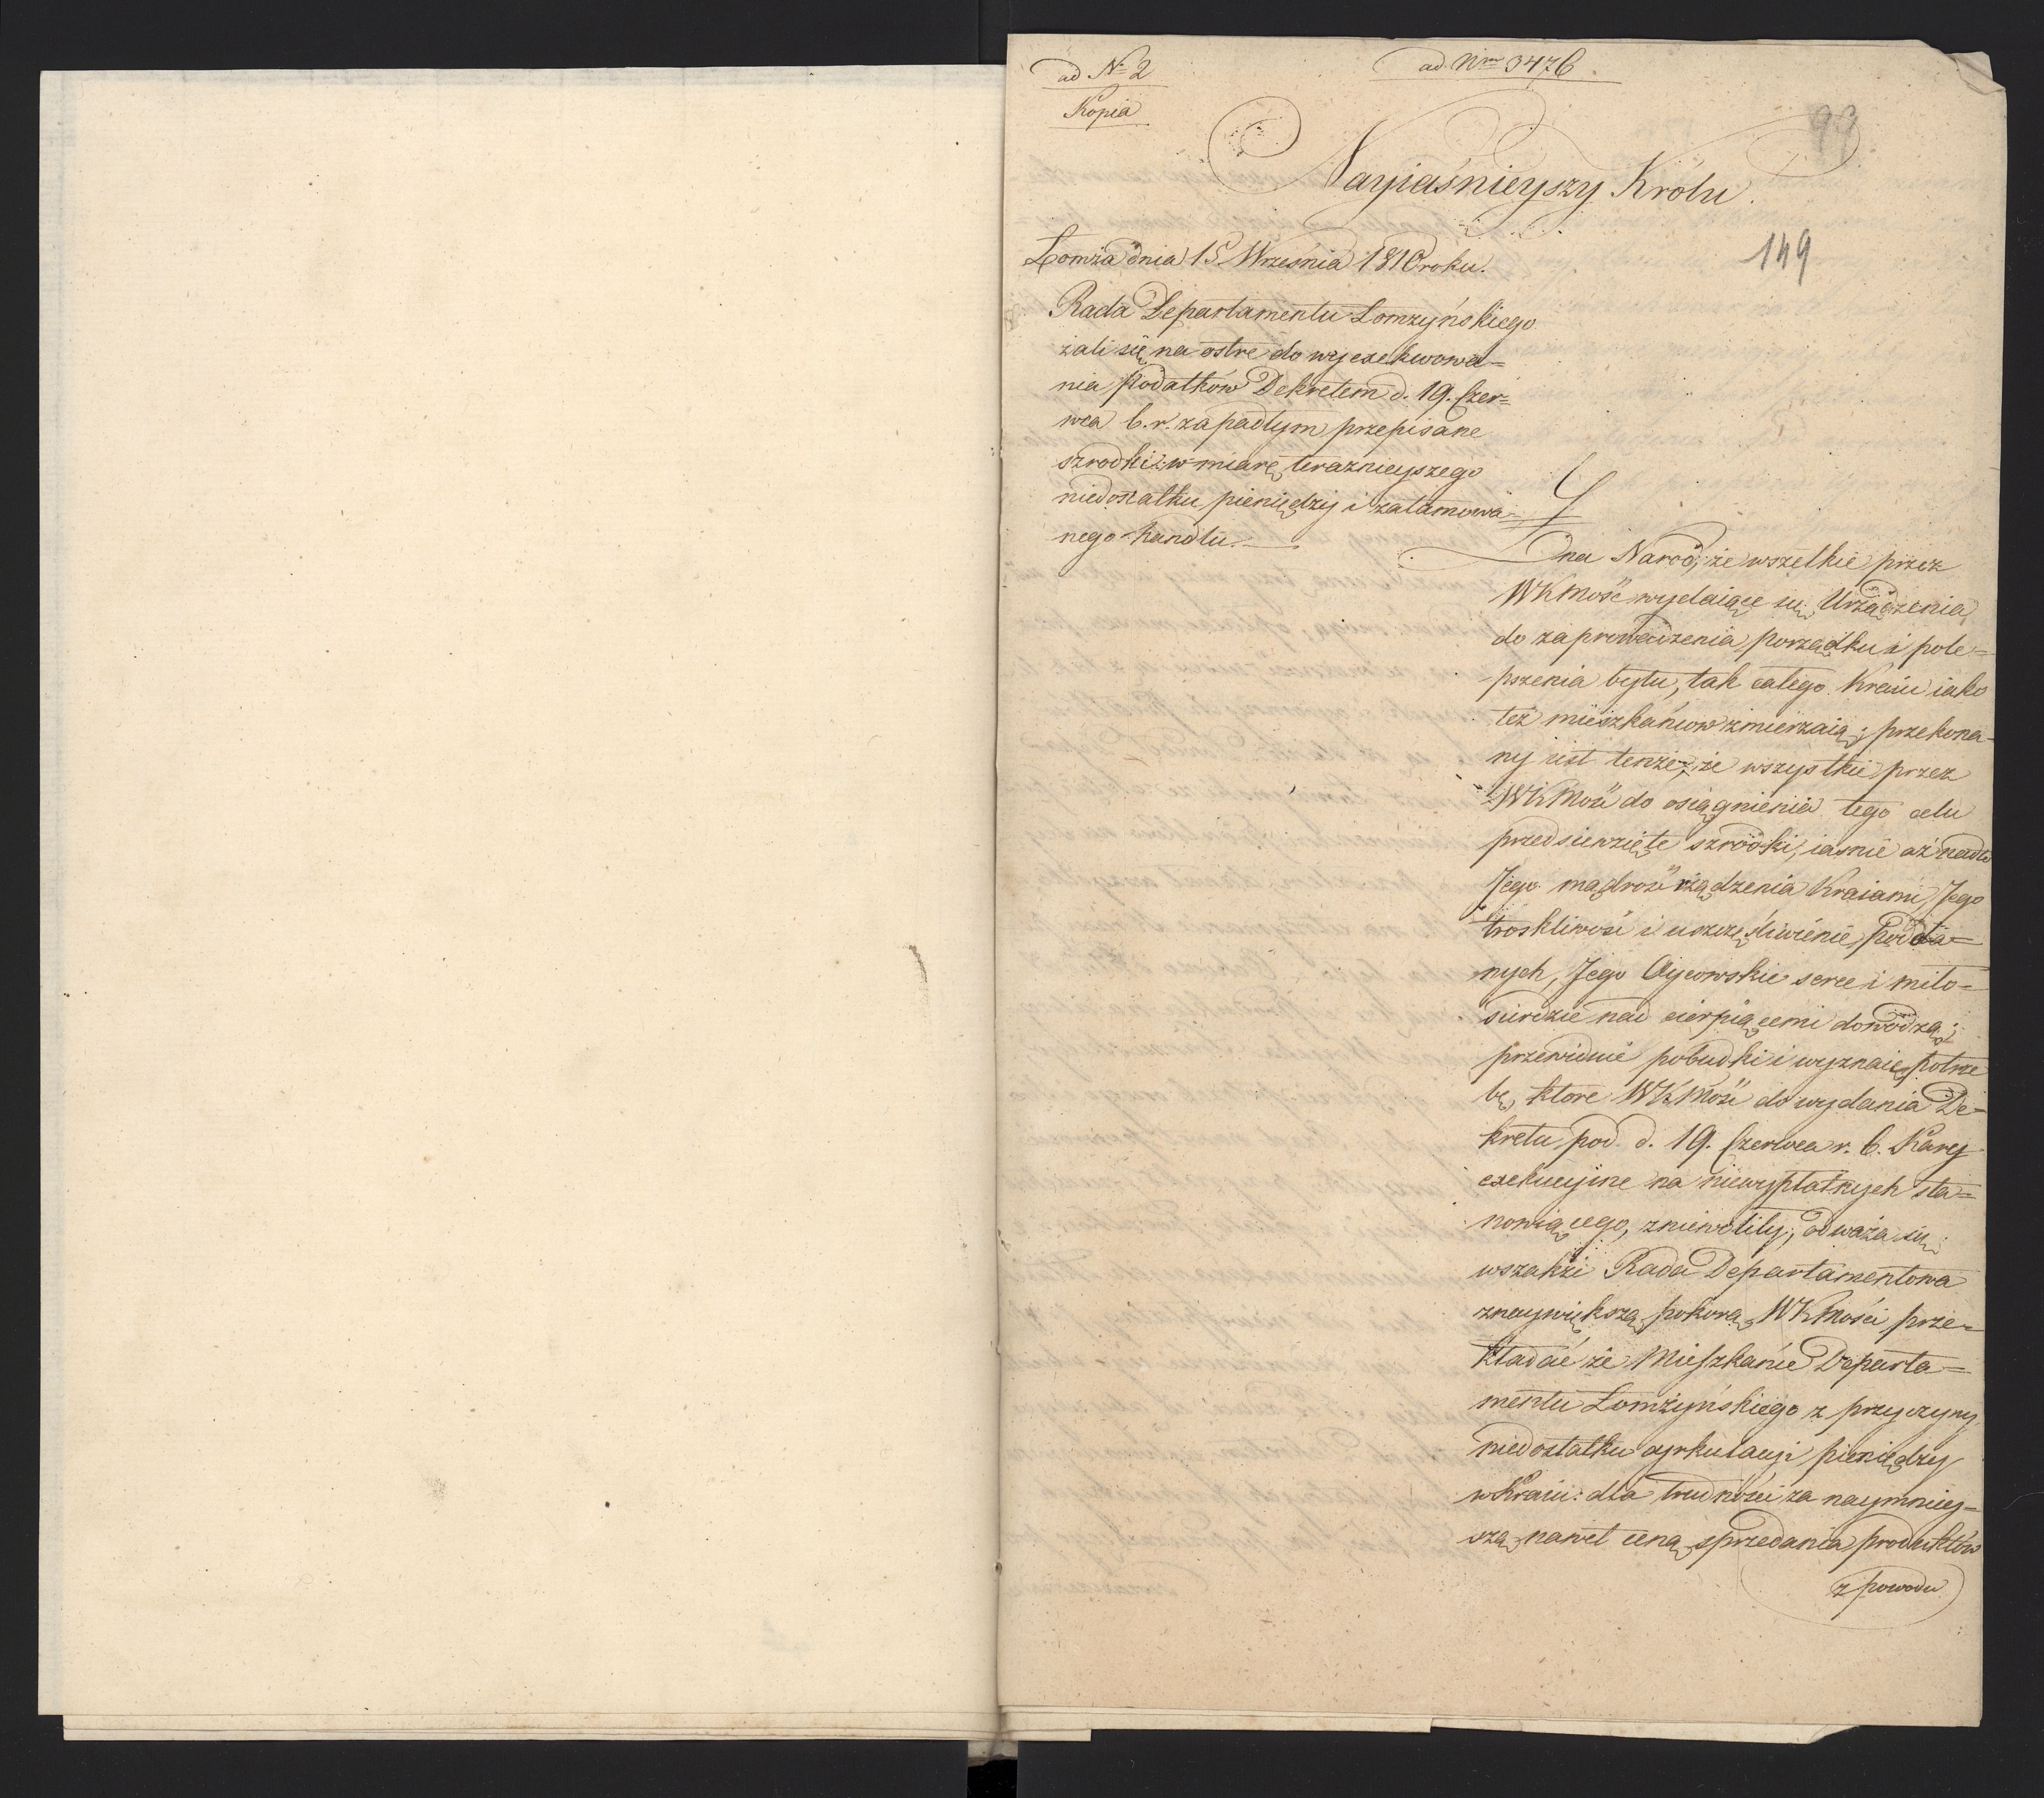 ad N= 2
ad Nrm 3476.
Kopia
93
Nayiaśnieyszy Królu.
149
Łomża dnia 15 Września 1810 roku.
Rada Departamentu Łomżyńskiego
żali się na ostre do wyexekwowa=
nia Podatków Dekretem d. 19. Czer=
wca b. r. zapadłym przepisane
szrodki: w miarę teraznieyszego
niedostatku pieniędzy i zatamowa=
nego handlu.
Zna Naród, że wszelkie przez
WKMość wydaiące się Urządzenia,
do zaprowadzenia porządku i pole=
pszenia bytu, tak całego Kraiu iako
też mieszkańcow zmierzaią; przekona=
ny iest tenże, że wszystkie przez
WKMość do osiągnienia tego celu
przedsiewzięte szrodki, iasnie aż nadto
Jego mądrość rządzenia Kraiami, Jego
troskliwość i uszczęśliwienie Podda=
nych, Jego Oycowskie serce i miło=
sierdzie nad cierpiącemi dowodzą;
przewiduie pobudki i wyznaie potrze
bę, ktore WKMość do wydania De=
kretu pod d. 19. Czerwca r. b. Kary
exekucyine na niewypłatnych sta=
nowiącego, zniewoliły; odważa się
wszakże Rada Departamentowa
znaywiększą pokorą WKMości prze=
kładać że Mieszkańce Departa=
mentu Łomżyńskiego z przyczyny
niedostatku cyrkulacyi pieniędzy
w Kraiu: dla trudności za naymniey=
szą nawet cenę sprzedania produktów
z powodu